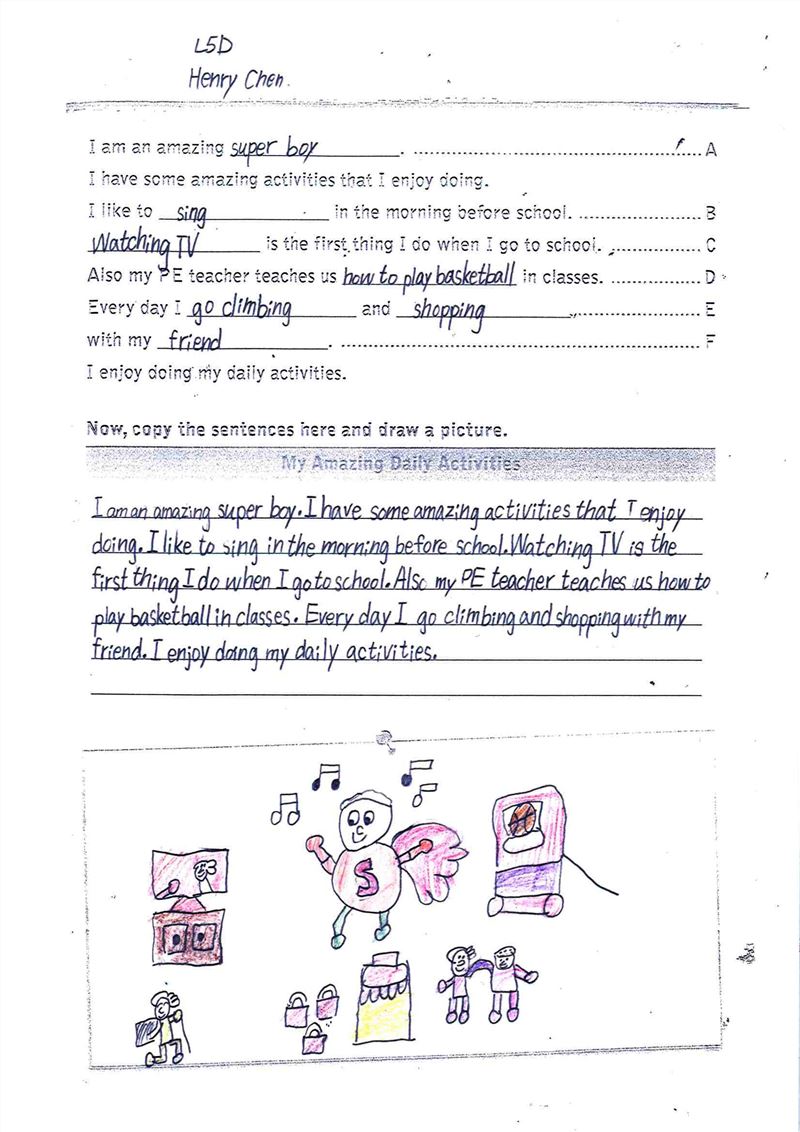 L5D
Henry Chen.
I am an amazing super boy. A
I have some amazing activities that I enjoy doing.
I like to sing in the morning before school. B
Watching TV is the first thing I do when I go to school. C
Also my PE teacher teaches us how to play basketball in classes. D
Every day I go climbing and shopping E
with my friend. F
I enjoy doing my daily activities.
Now, copy the sentences here and draw a picture.
My Amazing Daily Activities
I am an amazing super boy. I have some amazing activities that I enjoy
doing. I like to sing in the morning before school. Watching TV is the
first thing I do when I go to school. Also my PE teacher teaches us how to
play basketball in classes. Every day I go climbing and shopping with my
friend. I enjoy doing my daily activities.
S